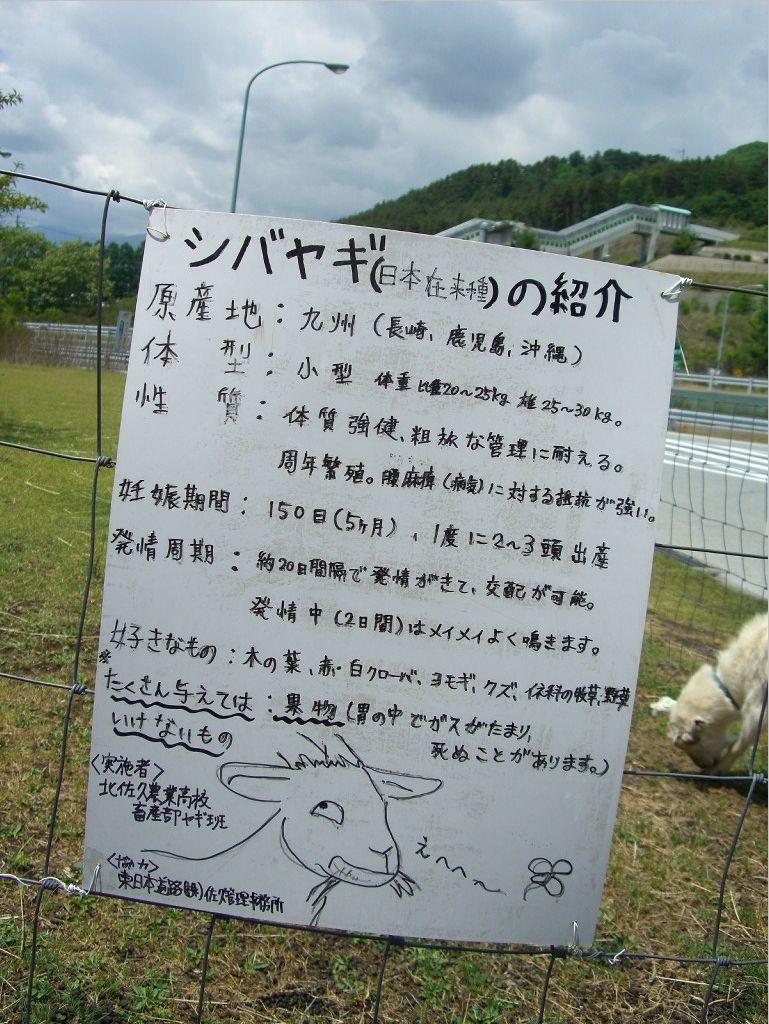 シバヤギ(日本在来種)の紹介
原産地：九州（長崎、鹿児島、沖縄）
体型：小型 体重 雌20〜25kg 雄25〜30kg。
性質：体質強健、粗放な管理に耐える。
周年繁殖。腰麻痺(病気)に対する抵抗が強い。
妊娠期間：150日(5ヶ月)、1度に2〜3頭出産
発情周期：約20日間隔で発情がきて、交配が可能。
発情中(2日間)はメイメイよく鳴きます。
好きなもの：木の葉、赤・白クローバ、ヨモギ、クズ、イネ科の牧草、野草
※たくさん与えては：果物(胃の中でガスがたまり、
いけないもの 死ぬことがあります。)
<実施者>
北佐久農業高校
畜産部ヤギ班
えへへ〜
<協力>
東日本道路(株)佐久管理事務所